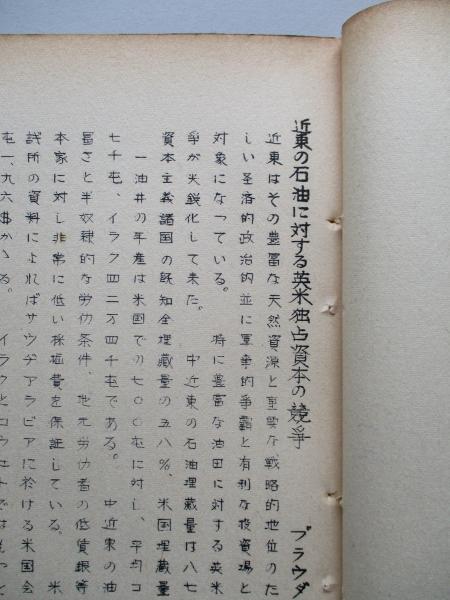 近東の石油に対する英米独占資本の競爭
プラウダ
近東はその豊富な天然資源と重要な戦略的地位のた
しい圣済的政治的並に軍事的爭覇と有利な投資場と
対象になっている。 特に豊富な油田に対する英米
爭が尖鋭化して来た。 中近東の石油埋蔵量は八七
資本主義諸国の既知全埋蔵量の五八%、 米国埋蔵量
一油井の年産は米国での七〇〇屯に対し、平均コ
七千屯、イラク四二万四千屯である。 中近東の油
富さと半奴隷的な労仂条件、地元労仂者の低賃銀等
本家に対し非常に低い採掘費を保証している。 米
試所の資料によればサウヂアラビアに於ける米国会
屯一、九六弗かゝる。 イラクとコウエトでは